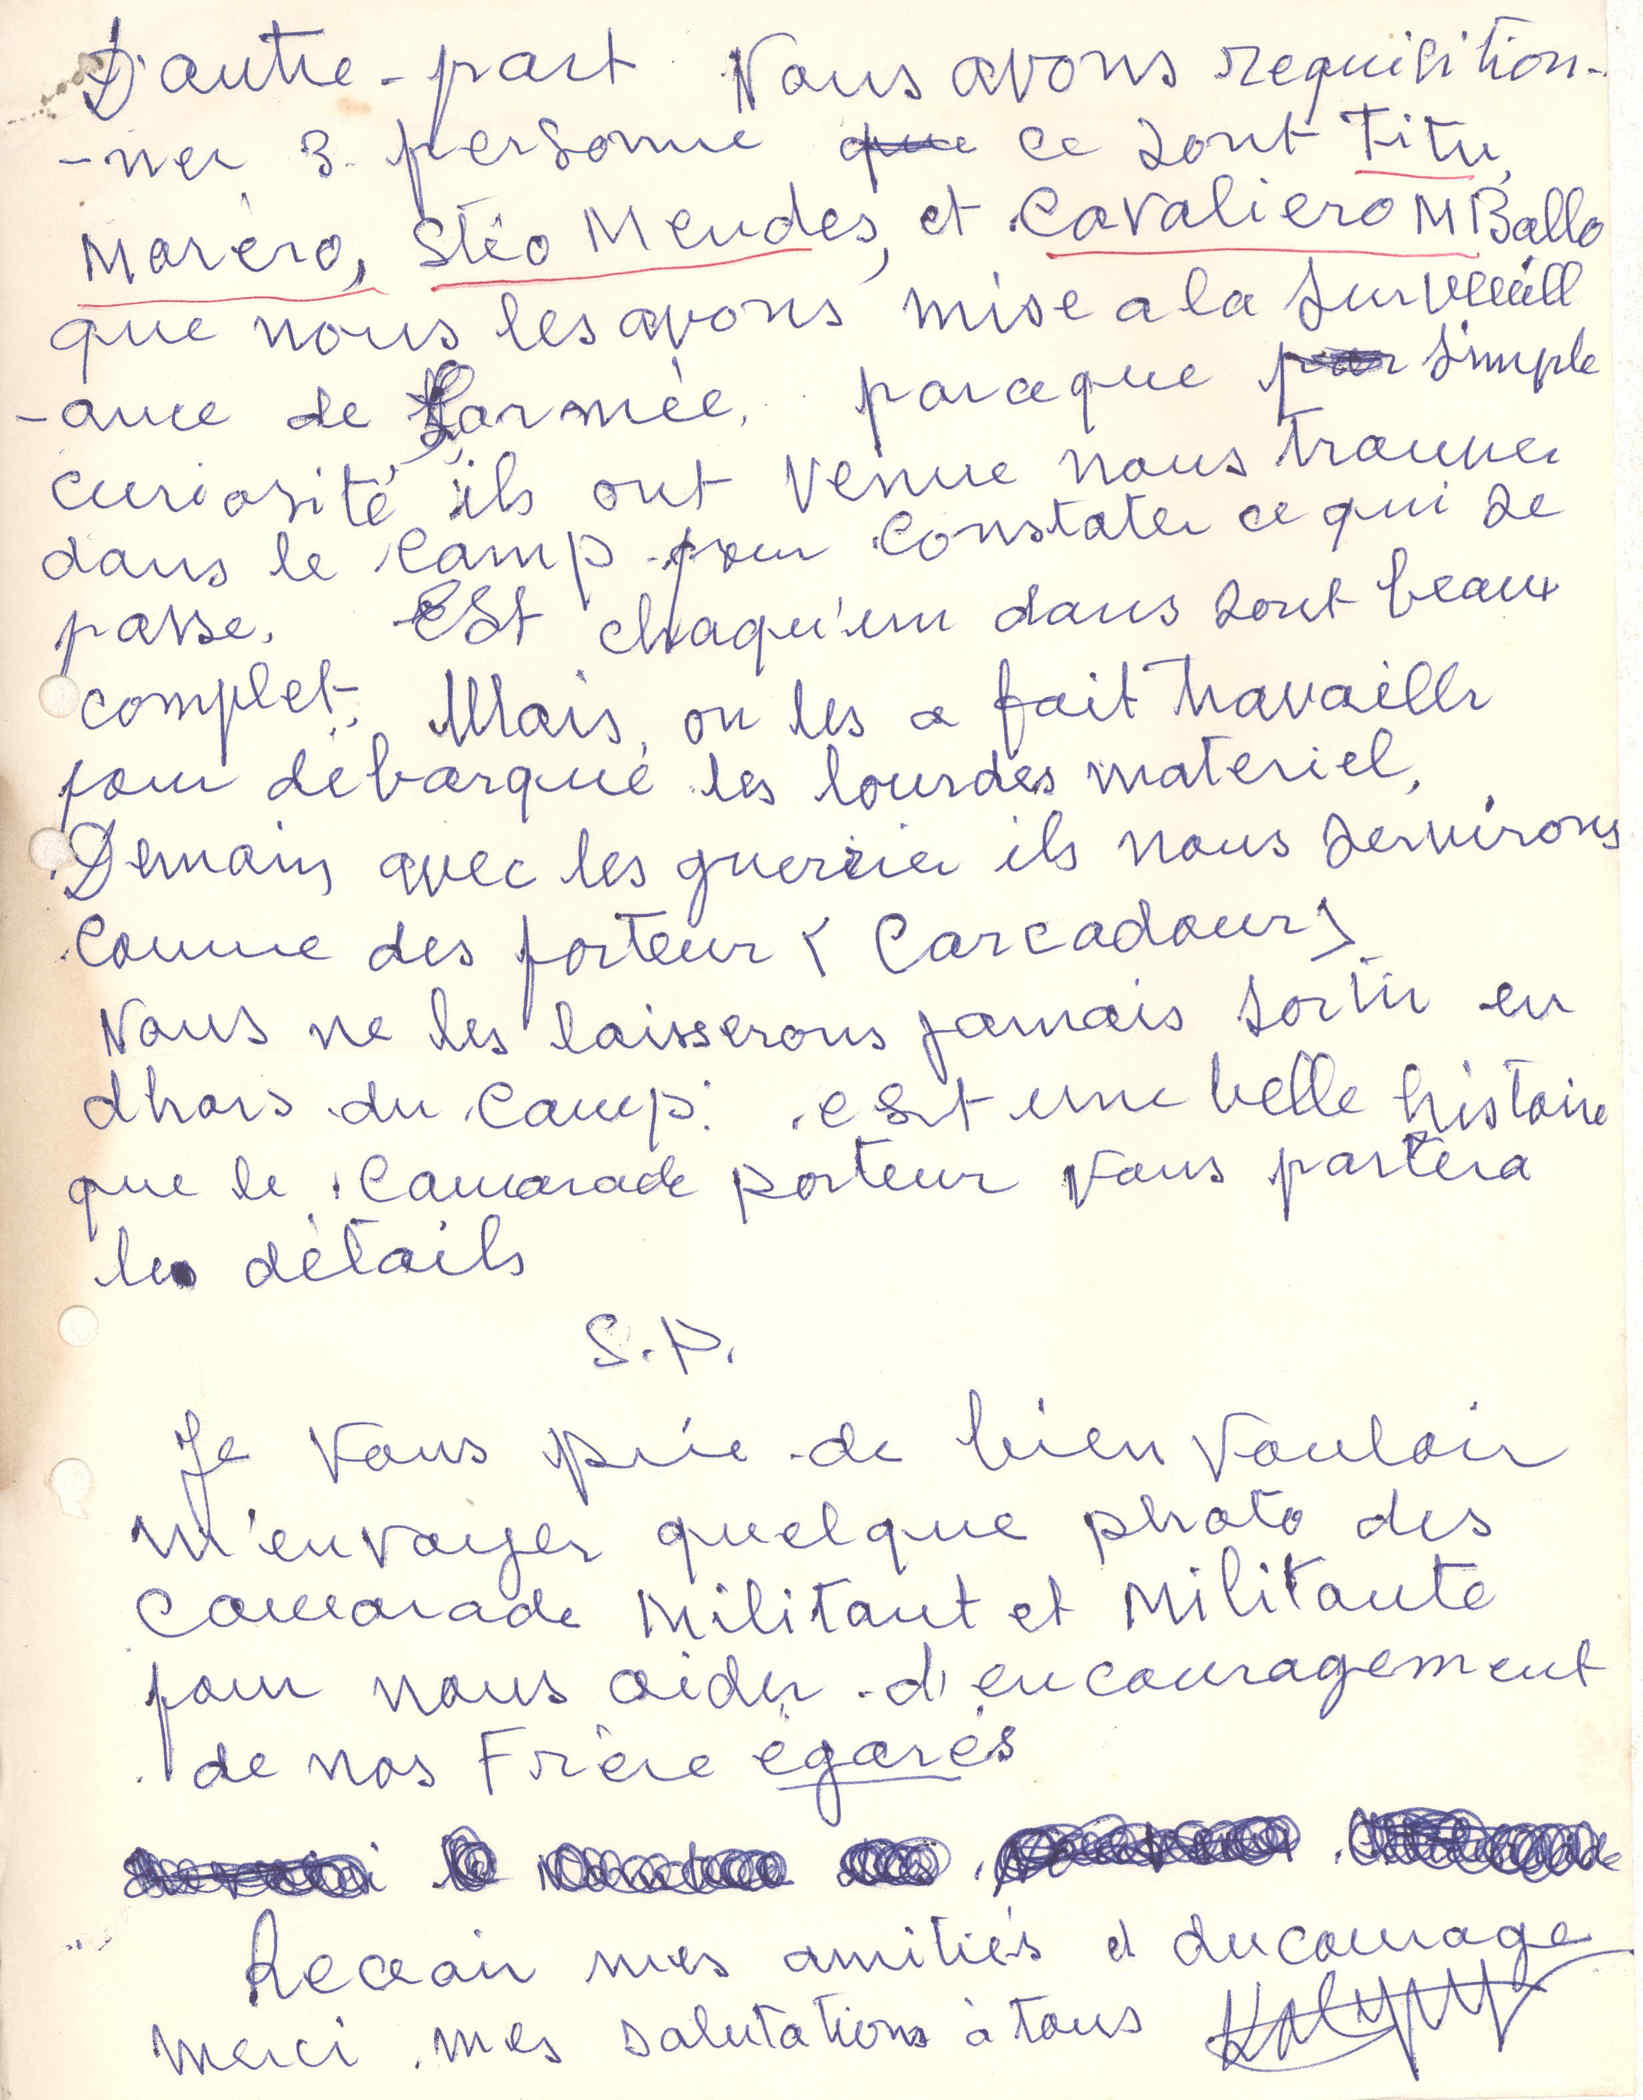 D'autre-part Nous avons requisition-
-ner 3 personne ce sont Titu
Maréro, Stéo Mendes, et Cavaliero MBallo
que nous les avons mise a la surveill
-ance de l'armée. parceque simple
curiosité ils ont venue nous trouver
dans le camp pour constater ce qui se
passe. Est chaqu'un dans sont beaux
complet. Mais, on les a fait travailler
pour débarqué les lourdes materiel,
Demain avec les guerrier ils nous servirons
Comme des porteur ( Carcadour)
Nous ne les laisserons jamais sortir en
dhors du camp. est une belle histoire
que le Camarade porteur vous portera
les détails
S.P.
Je vous prie de bien vouloir
m'envoyer quelque photo des
Camarade Militant et Militante
pour nous aider d'encouragement
de nos Frère égarés
Recevoir mes amitiés et du courage
merci mes salutations à tous